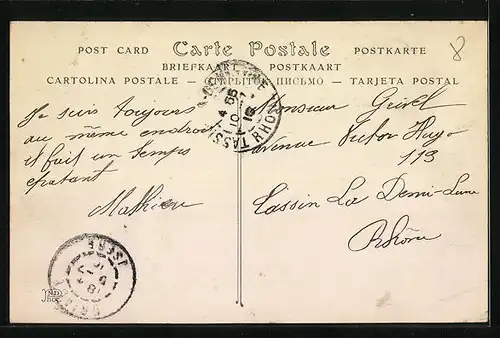 POST CARD Carte Postale POSTKARTE
BRIEFKAART POSTKAART
CARTOLINA POSTALE — ОТКРЫТОЕ ПИСЬМО — TARJETA POSTAL
8
Je suis toujours
au même endroit
il fait un temps
épatant
Mathieu
Monsieur
Avenue Victor Hugo
113
Tassin La Demi-Lune
Rhône
TASSIN RHONE
4 55
10 - 7
ISERE